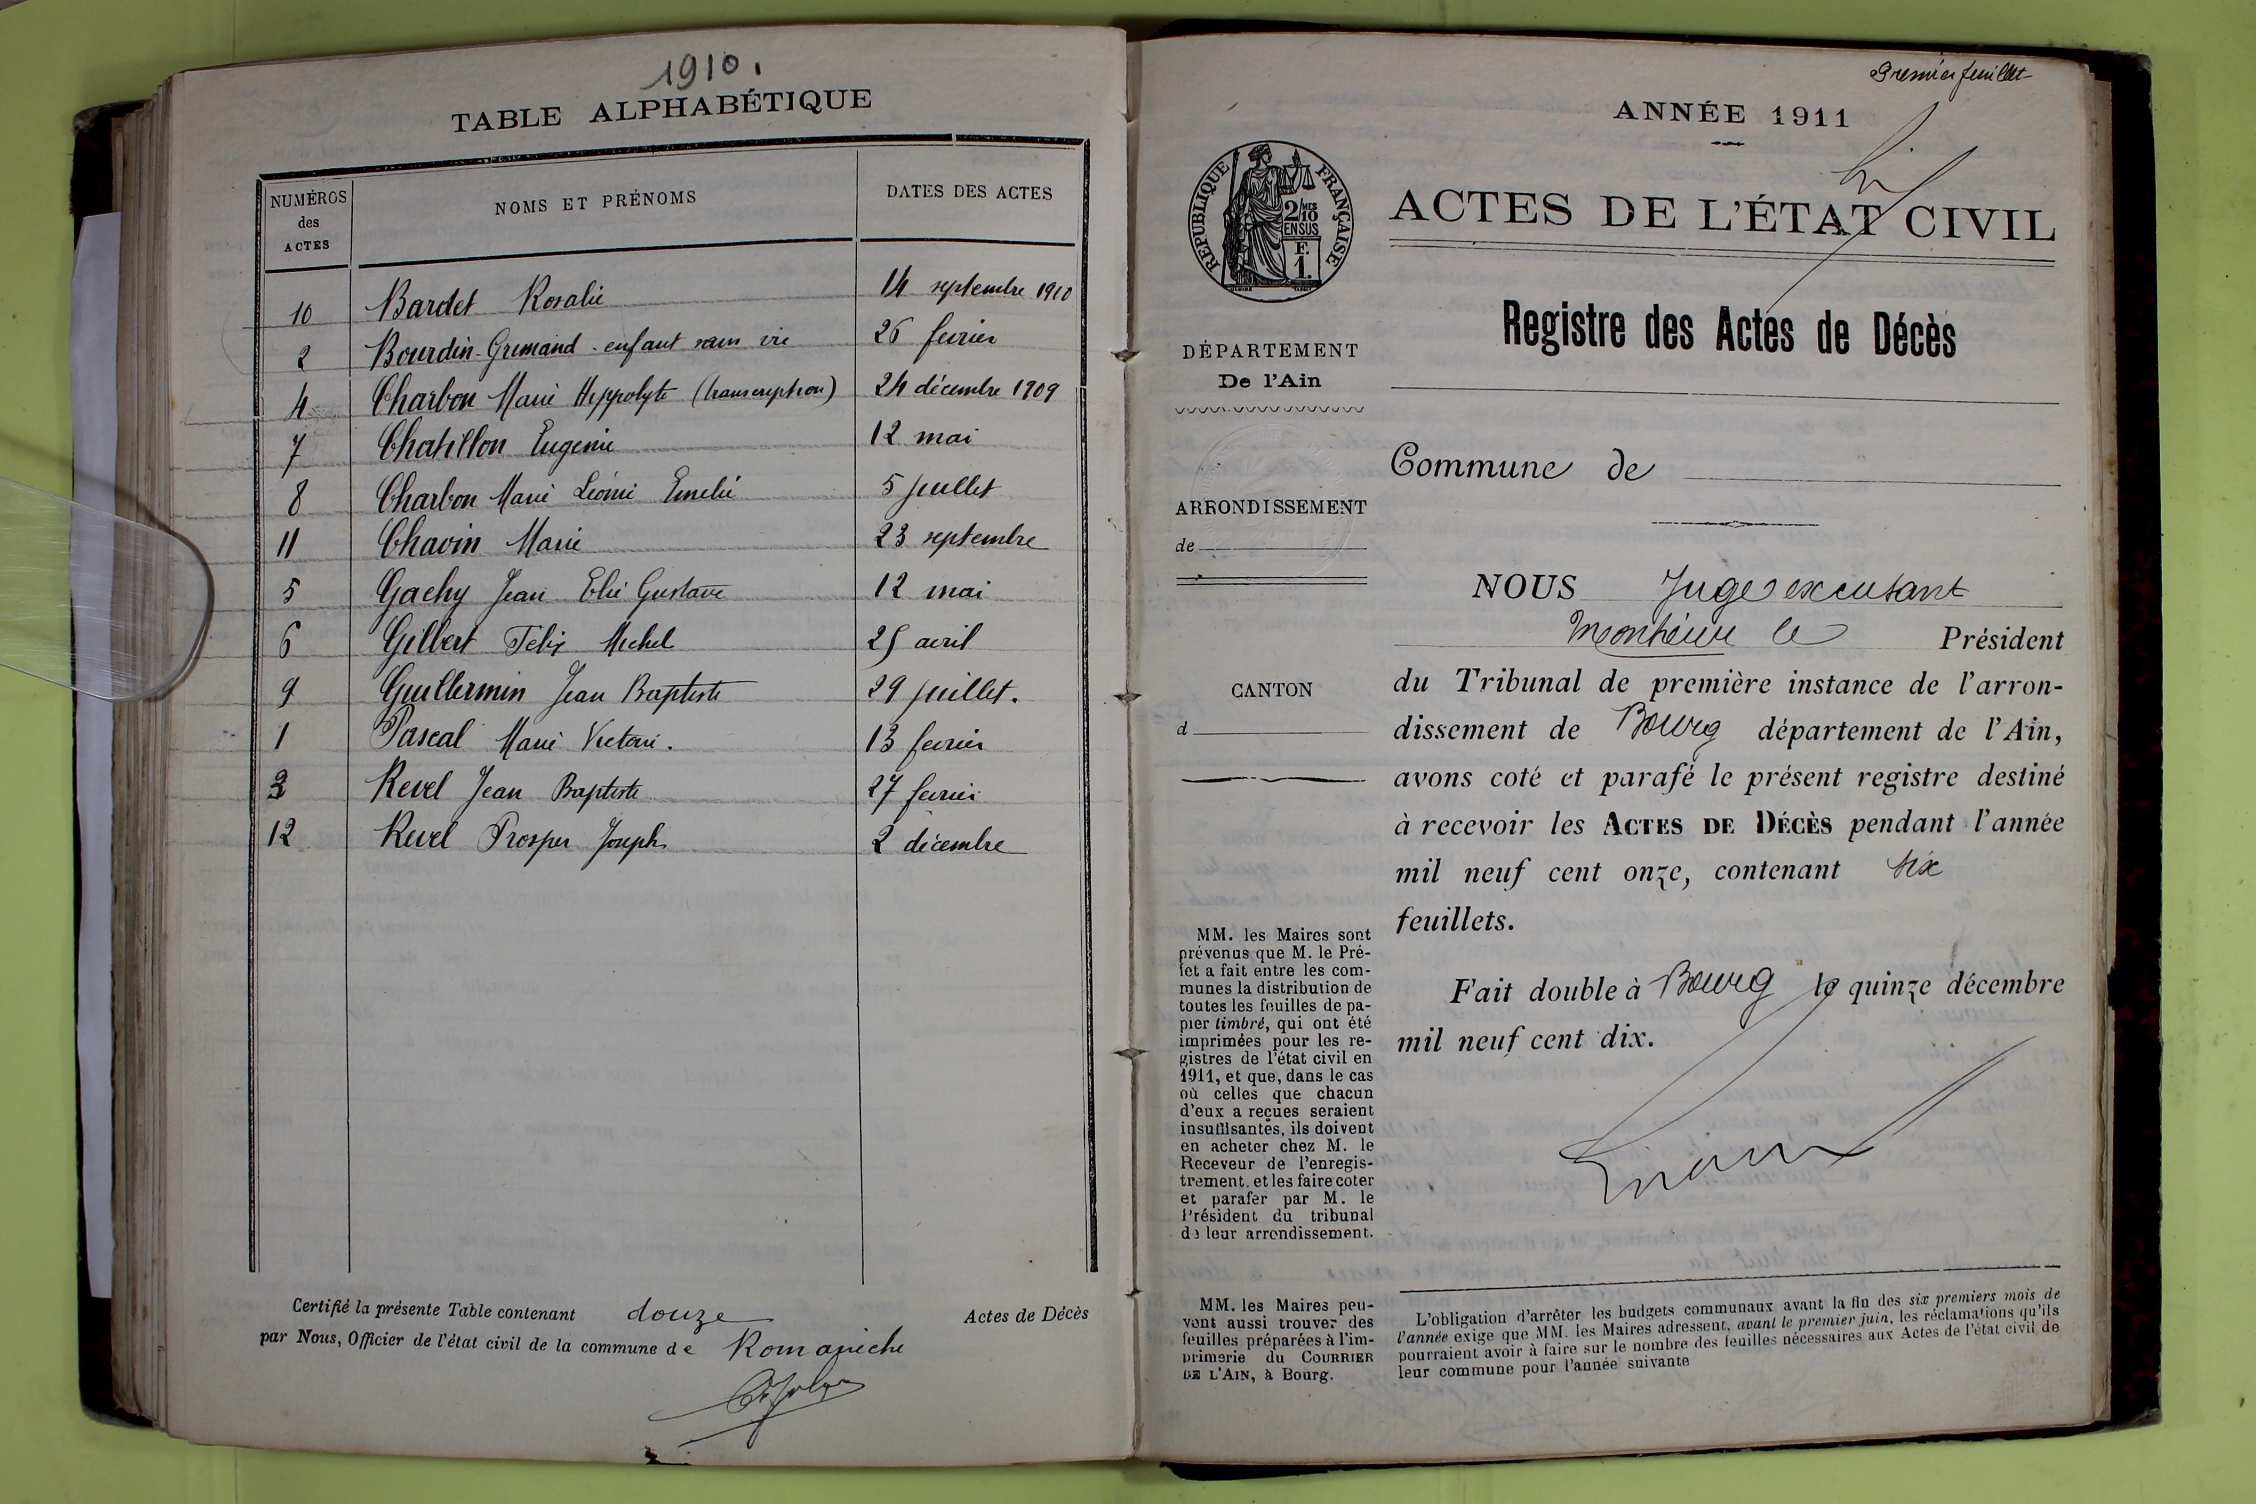 1910.
TABLE ALPHABÉTIQUE
NUMÉROS des ACTES NOMS ET PRÉNOMS DATES DES ACTES
10 Bardet Rosalie 14 septembre 1910
2 Bourdin-Gremand - enfant sans vie 26 fevrier
4 Charbon Marie Hippolyte (transcription) 24 décembre 1909
7 Chatillon Eugenie 12 mai
8 Charbon Marie Léonie Emelie 5 juillet
11 Chavin Marie 23 septembre
5 Gachy Jean Elie Gustave 12 mai
6 Gilbert Felix Michel 25 avril
9 Guillermin Jean Baptiste 29 juillet.
1 Pascal Marie Victorie. 13 fevrier
3 Revel Jean Baptiste 27 fevrier
12 Revel Prosper Joseph 2 décembre
Certifié la présente Table contenant douze Actes de Décès
par Nous, Officier de l'état civil de la commune de Romanèche
Premier feuillet
ANNÉE 1911
RÉPUBLIQUE FRANÇAISE
2/10 MES
EN SUS
F.
1.
ACTES DE L'ÉTAT CIVIL
Registre des Actes de Décès
DÉPARTEMENT
De l'Ain
Commune de
ARRONDISSEMENT
de
CANTON
d
NOUS Juge excusant
Monsieur le Président
du Tribunal de première instance de l'arron-
dissement de Bourg département de l'Ain,
avons coté et parafé le présent registre destiné
à recevoir les ACTES DE DÉCÈS pendant l'année
mil neuf cent onze, contenant six
feuillets.
Fait double à Bourg le quinze décembre
mil neuf cent dix.
MM. les Maires sont
prévenus que M. le Pré-
fet a fait entre les com-
munes la distribution de
toutes les feuilles de pa-
pier timbré, qui ont été
imprimées pour les re-
gistres de l'état civil en
1911, et que, dans le cas
où celles que chacun
d'eux a reçues seraient
insuffisantes, ils doivent
en acheter chez M. le
Receveur de l'enregis-
trement, et les faire coter
et parafer par M. le
Président du tribunal
de leur arrondissement.
MM. les Maires peu-
vent aussi trouver des
feuilles préparées à l'im-
primerie du COURRIER
DE L'AIN, à Bourg.
L'obligation d'arrêter les budgets communaux avant la fin des six premiers mois de
l'année exige que MM. les Maires adressent, avant le premier juin, les réclamations qu'ils
pourraient avoir à faire sur le nombre des feuilles nécessaires aux Actes de l'état civil de
leur commune pour l'année suivante